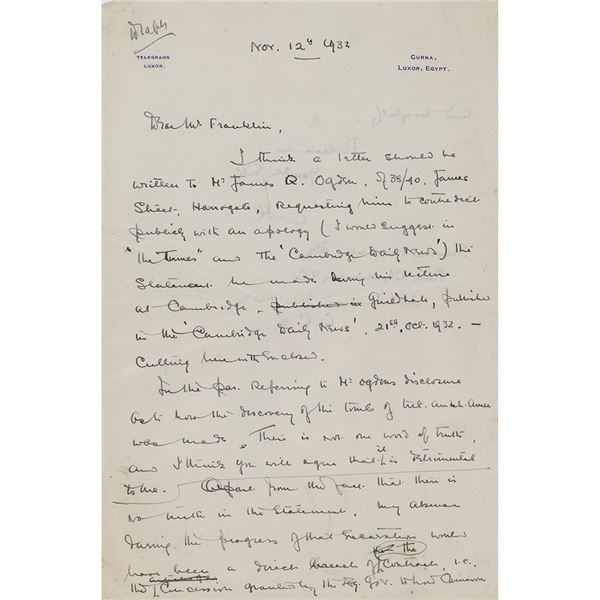 Nov. 12th 1932
TELEGRAMS
LUXOR.
GURNA,
LUXOR, EGYPT.
Dear Mr Franklin,
I think a letter should be
written to Mr James R. Ogden, of 38/40, James
Street, Harrogate, requesting him to contradict
publicly with an apology (I would suggest in
"The Times" and the 'Cambridge Daily News') the
Statement he made during his lecture
at Cambridge, published in Guildhall, published
in the 'Cambridge Daily News', 21st. Oct. 1932. —
Cutting herewith enclosed.
In the par. referring to Mr Ogdens disclosure
as to how the discovery of the tomb of Tut.ankh.Amen
was made, There is not one word of truth,
and I think you will agree that it is detrimental
to me. Apart from the fact that there is
no truth in the statement, my absence
during the progress of that excavation would
have been a direct breach of the Contract, i.e.
the Concession granted by the Eg. Gov. to Lord Carnarvon